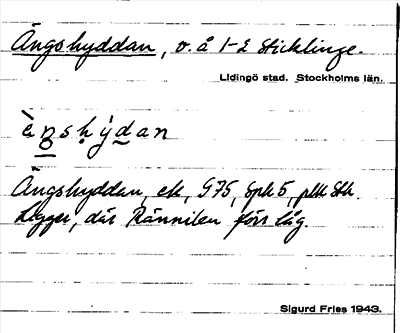 Ängshyddan, v. å 1-2 Sticklinge.
Lidingö stad. Stockholms län.
ä̀ŋshýdan
Ängshyddan, ek, S75, Spk 5, Stk.
Ligger, där Rännilen förr låg.
Sigurd Fries 1943.